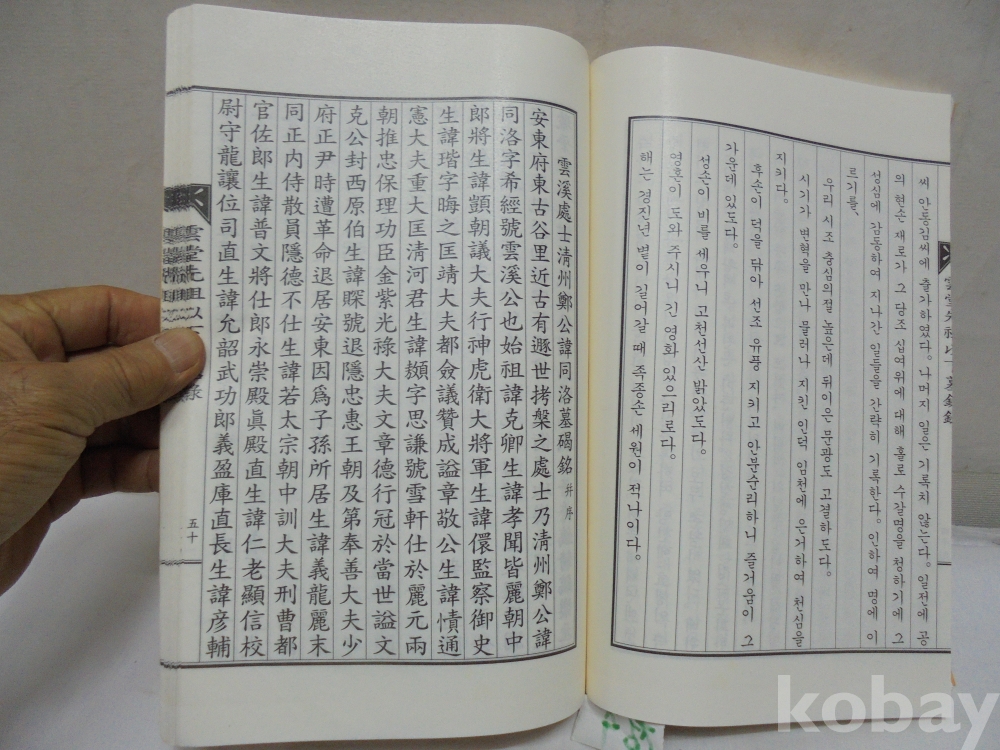 씨 안동김씨에 출가하였다. 나머지 일은 기록치 않는다. 일전에 공
의 현손 재로가 그 당조 십여위에 대해 홀로 수갈명을 청하기에 그
성심에 감동하여 지나간 일들을 간략히 기록한다. 인하여 명에 이
르기를,
우리 시조 충심의절 높은데 뒤이은 문광도 고결하도다.
시기가 변혁을 만나 물러나 지킨 인덕 임천에 은거하여 천심을
지키다.
후손이 덕을 닦아 선조 유풍 지키고 안분순리하니 즐거움이 그
가운데 있도다.
성손이 비를 세우니 고천선산 밝았도다.
영혼이 도와 주시니 긴 영화 있으리로다.
해는 경진년 별이 길어갈 때 족종손 세원이 적나이다.
雲溪處士清州鄭公諱同洛墓碣銘 幷序
安東府東古谷里近古有遯世拷槃之處士乃清州鄭公諱
同洛字希經號雲溪公也始祖諱克卿生諱孝聞皆麗朝中
郎將生諱顗朝議大夫行神虎衛大將軍生諱儇監察御史
生諱瑎字晦之匡靖大夫都僉議贊成謚章敬公生諱𢢝通
憲大夫重大匡清河君生諱頲字思謙號雪軒仕於麗元兩
朝推忠保理功臣金紫光祿大夫文章德行冠於當世謚文
克公封西原伯生諱睬號退隱忠惠王朝及第奉善大夫少
府正尹時遭革命退居安東因爲子孫所居生諱義龍麗末
同正内侍散員隱德不仕生諱若太宗朝中訓大夫刑曹都
官佐郎生諱普文將仕郎永崇殿眞殿直生諱仁老顯信校
尉守龍讓位司直生諱允韶武功郎義盈庫直長生諱彦輔
雲堂先祖以
錄
五十
kobay